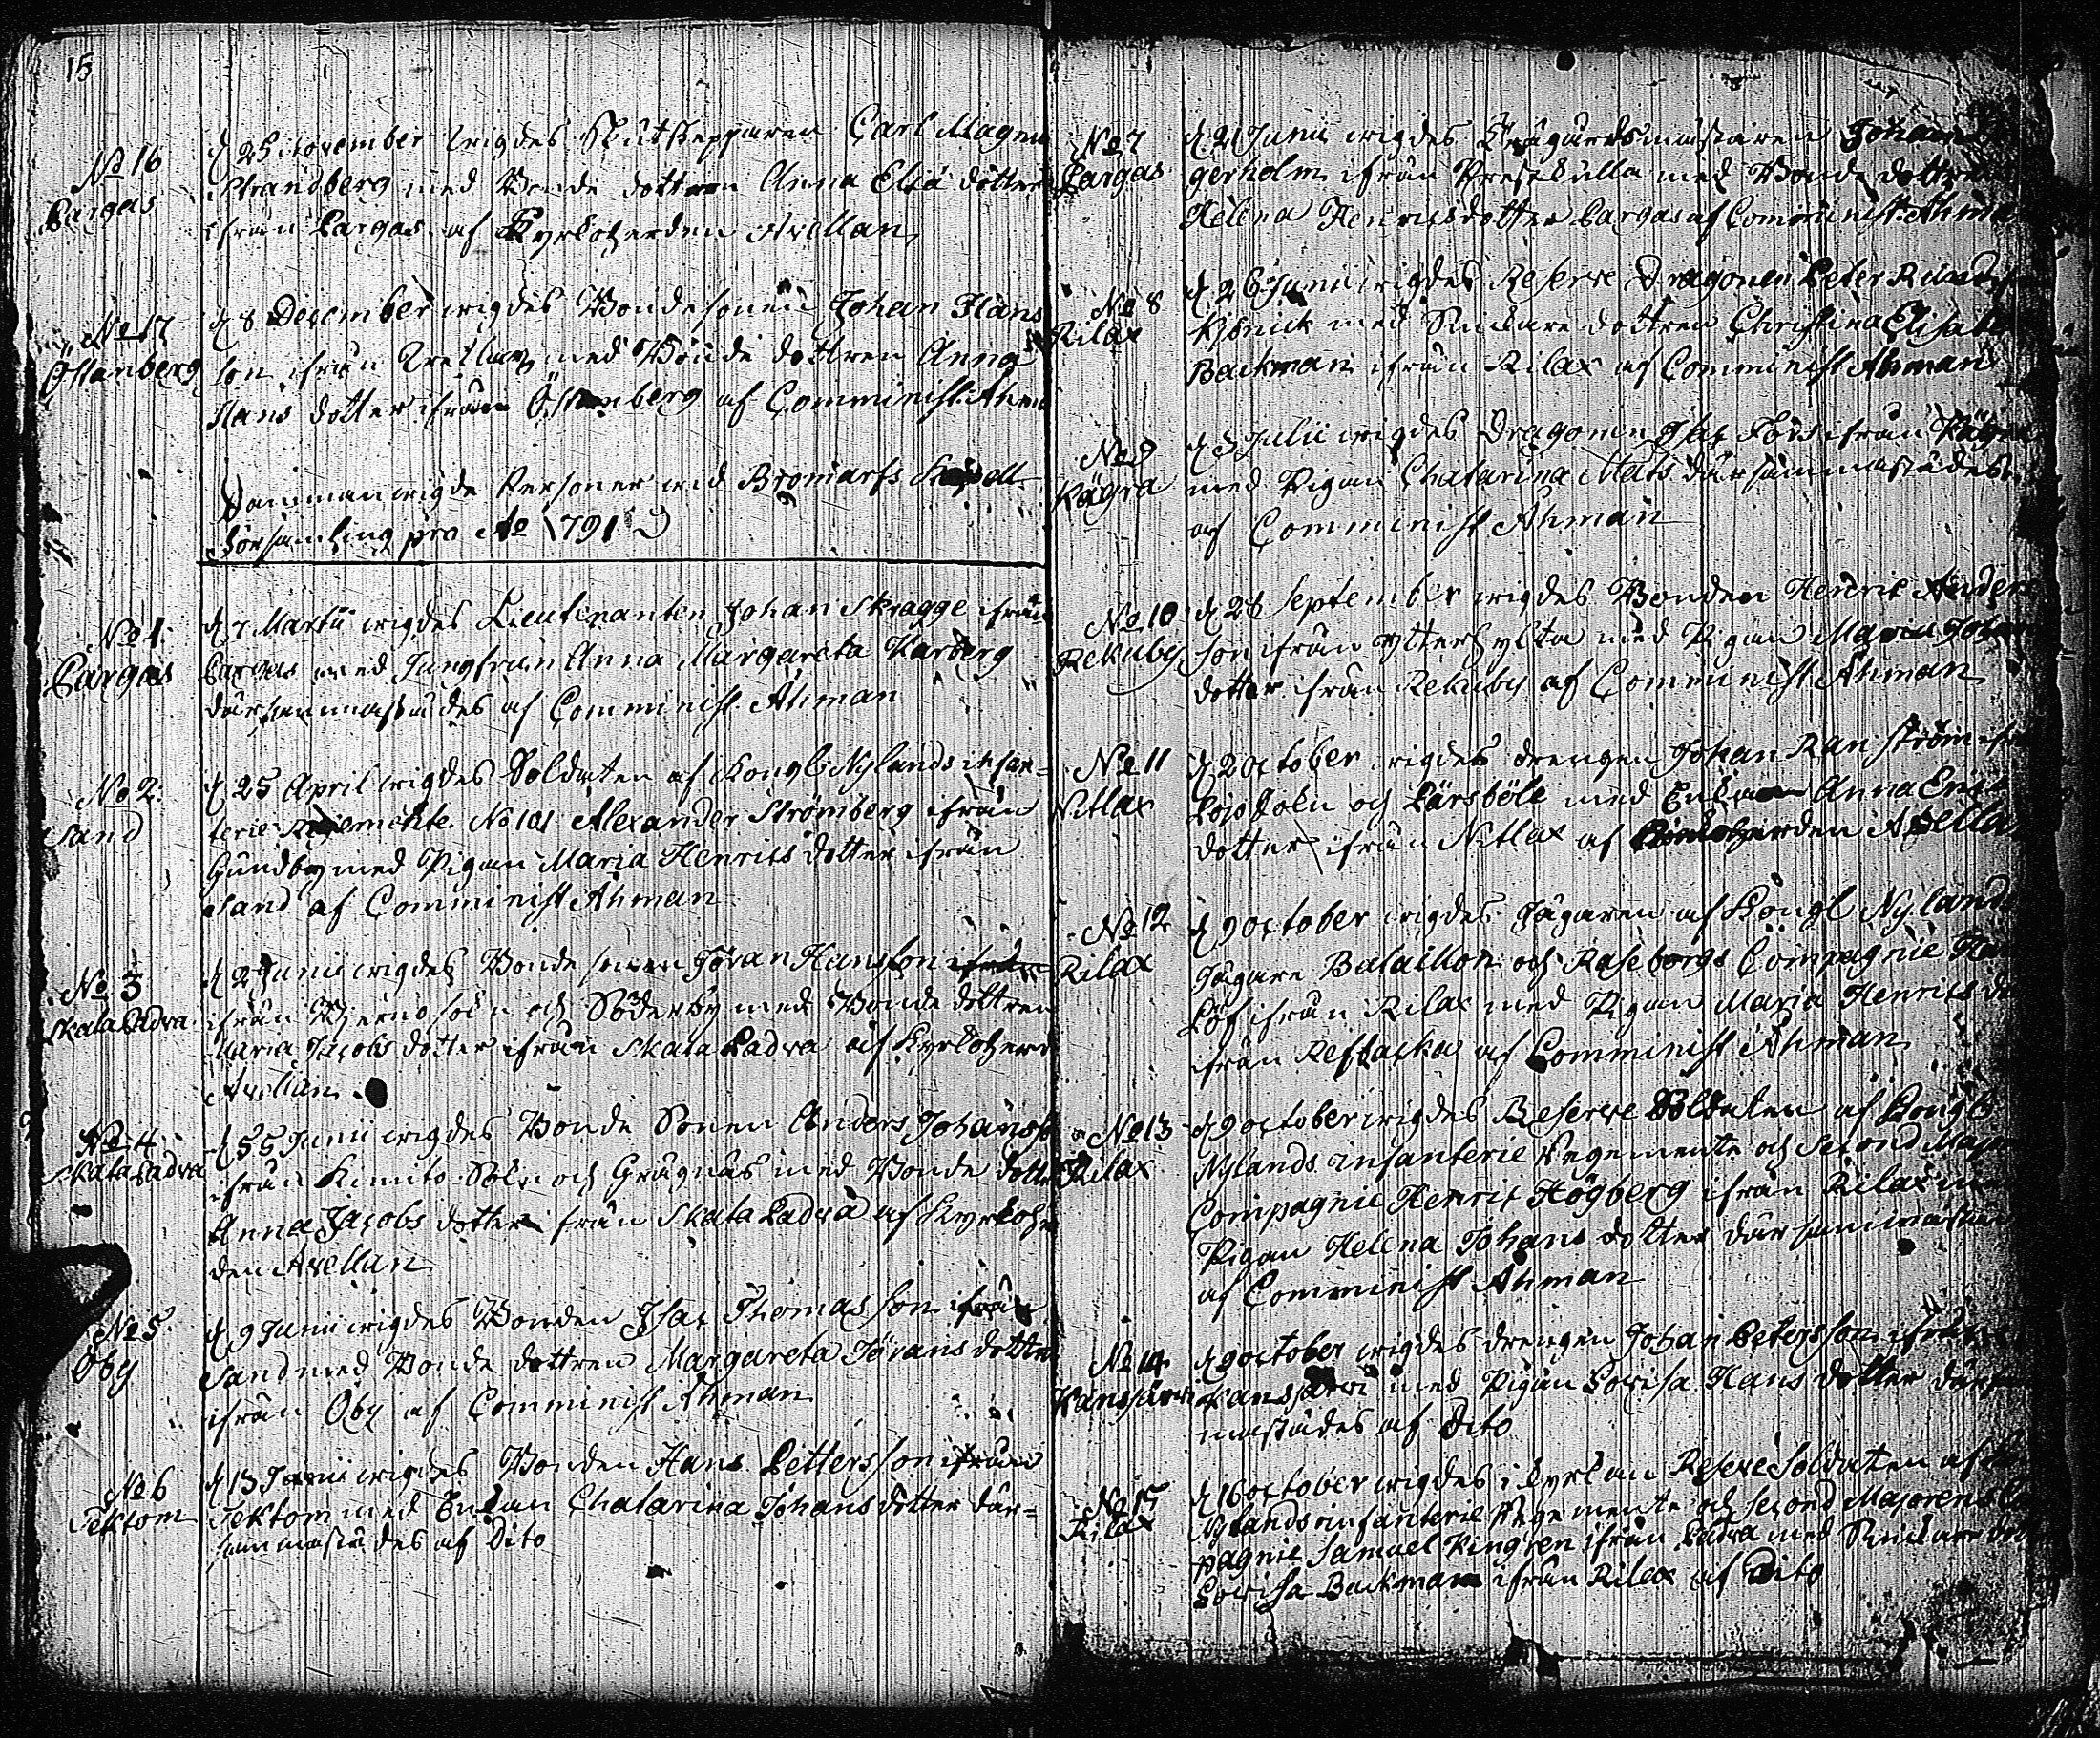 15
No 16
Bargas
d 25 november wigdes Skutskepparen Carl Magnu
Strandberg med Bonde dottren Anna Elsa dotter
ifrån Bargas af Kyrkoherden Avellan
No 17
Östanberg
d 8 December wigdes Bondesonen Johan Hans
son ifrån med Bonde dottren Anna
Hans dotter ifrån Östanberg af Comminist. Ahma
Sammanwigde Personer wid Bromarfs Kapell
Församling pro Ao 1791
No 1.
Bargas
d 7 Martii wigdes Lieutenanten Johan Skragge ifrån
Bargas med Jungfrun Anna Margareta Karberg
därsammastädes af Comminist. Ahman
No 2.
Sand
d 25 April wigdes Soldaten af Kongl Nylands infan=
terie Regemente No 101 Alexander Strömberg ifrån
Gundby med Pigan Maria Henrics dotter ifrån
Sand af Comminist Ahman
No 3
Skata Padva
d 2 Junii wigdes Bonde sonen Jöran Hansson
ifrån Kjerno sokn och Söderby med Bonde dottren
Maria Jacobs dotter ifrån Skata Padva af Kyrkoherd
Avellan.
No 4
Skata Padva
d 5 Junii wigdes Bonde Sonen Anders Johans
ifrån Kimito Sokn och Grågnäs med Bonde dottr
Anna Jacobs dotter från Skata Padva af Kyrkoher
den Avellan
No 5.
Öby
d 9 Junii wigdes Bonden Isac Thomas son ifrån
Sand med Bonde dottren Margareta Jörans dotter
ifrån Öby af Comminist Ahman
No 6
Tektom
d 13 Junii wigdes Bonden Hans Petters son ifrån
Tektom med Enkan Chatarina Johans dotter där=
sammastädes af Dito
No 7
Bargas
d. 21 Junii wigdes Trägårdsmästaren Johan
gerholm ifrån Prestkulla med Bonde dottren
Helena Henricsdotter Bargas af Comminist. Ahma
No 8
Rilax
d 26 Junii wigdes Reserve Dragonen Peter
med Snickare dottren Christina Elisabe
Backman ifrån Rilax af Comminist Ahman
No 9
Kägra
d 3 Julii wigdes Dragonen Isac Fors ifrån Kägra
med Pigan Chatarina Mats därsammastädes
af Comminist Ahman
No 10
Rekuby
d 28 September wigdes Bonden Henric Anders
son ifrån ytterhylta med Pigan Maria Johan
dotter ifrån Rekuby af Comminist Ahman
No 11
Nitlax
d 2 october wigdes drengen Johan Ranström ifrån
Lojo sokn och Lärsböle med Enkan Anna Eric
dotter ifrån Nitlax af Kyrkoherden Avella
No 12
Rilax
d 9 october wigdes Jägaren af Kongl Nyland
Jägare Bataillon och Raseborgs Compagnie Hen
Löf ifrån Rilax med Pigan Maria Henrics do
ifrån af Comminist Ahman
No 13
Rilax
d 9 october wigdes Reserve Soldaten af Kongl
Nylands infanterie Regemente och Second Major
Compagnie Henric Högberg ifrån Rilax med
Pigan Helena Johans dotter därsammastäd
af Comminist Ahman
No 14
Kansjärvi
d 9 october wigdes drengen Johan Petersson ifrån
Kansjärvi med Pigan Lovisa Hans dotter därsa
mastädes af Dito
No 15
Rilax
d 16 october wigdes i kyrkan Reserve Soldaten af
Nylands infanterie Regemente och Second Majorens
pagnie Samuel Kingren ifrån Padva med Snickare
Lovisa Backman ifrån Rilax af Dito